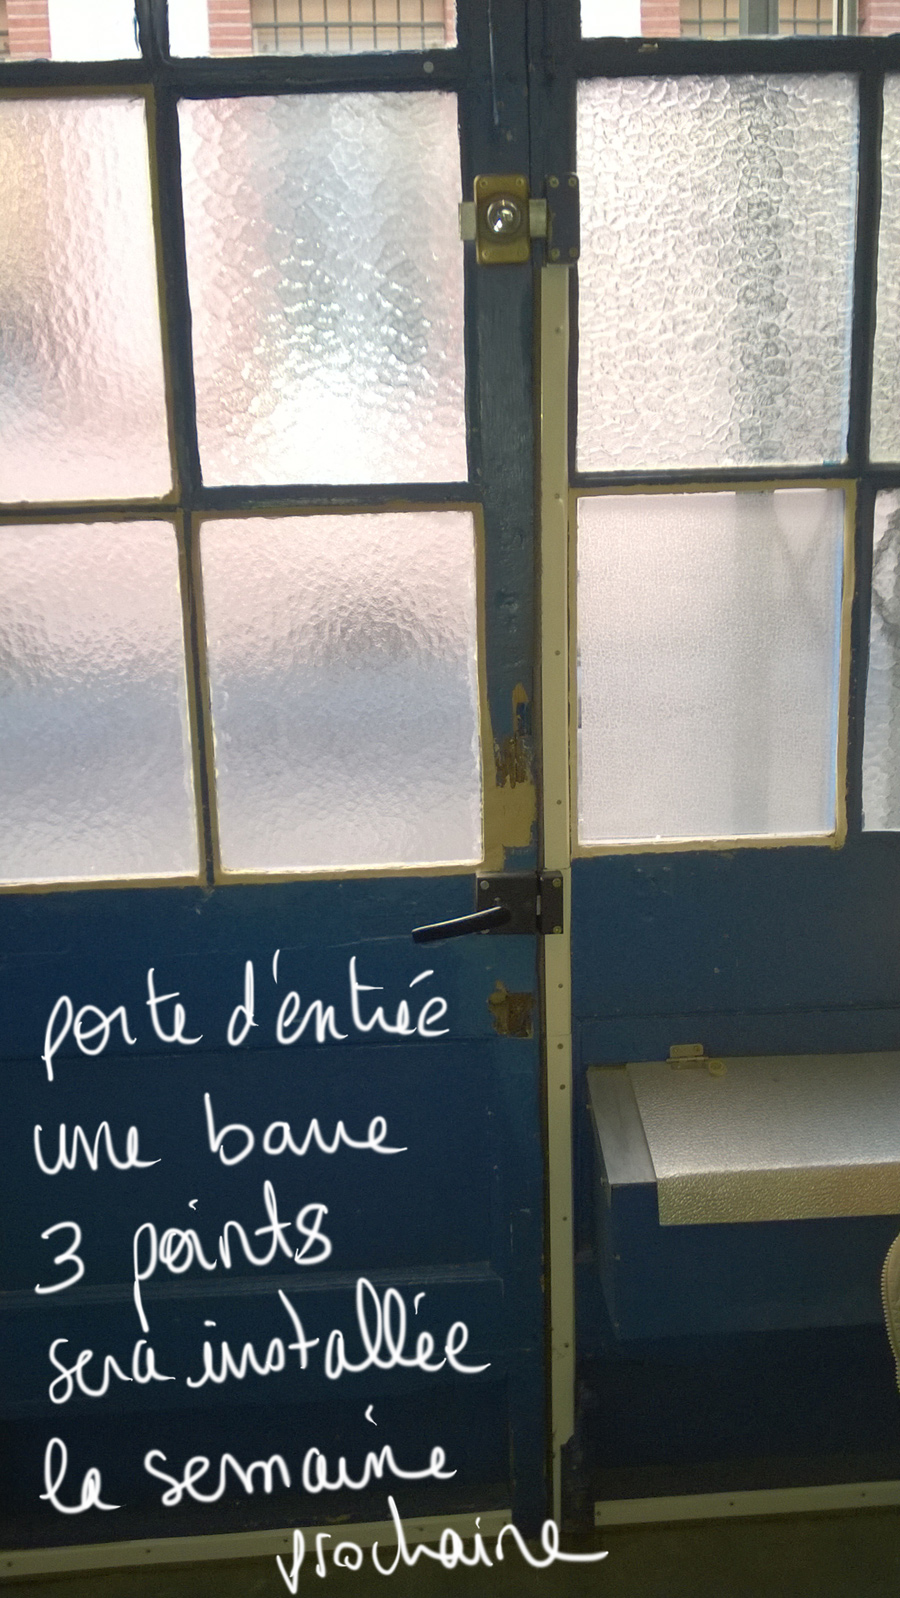 porte d'entrée
une barre
3 points
sera installée
la semaine
prochaine